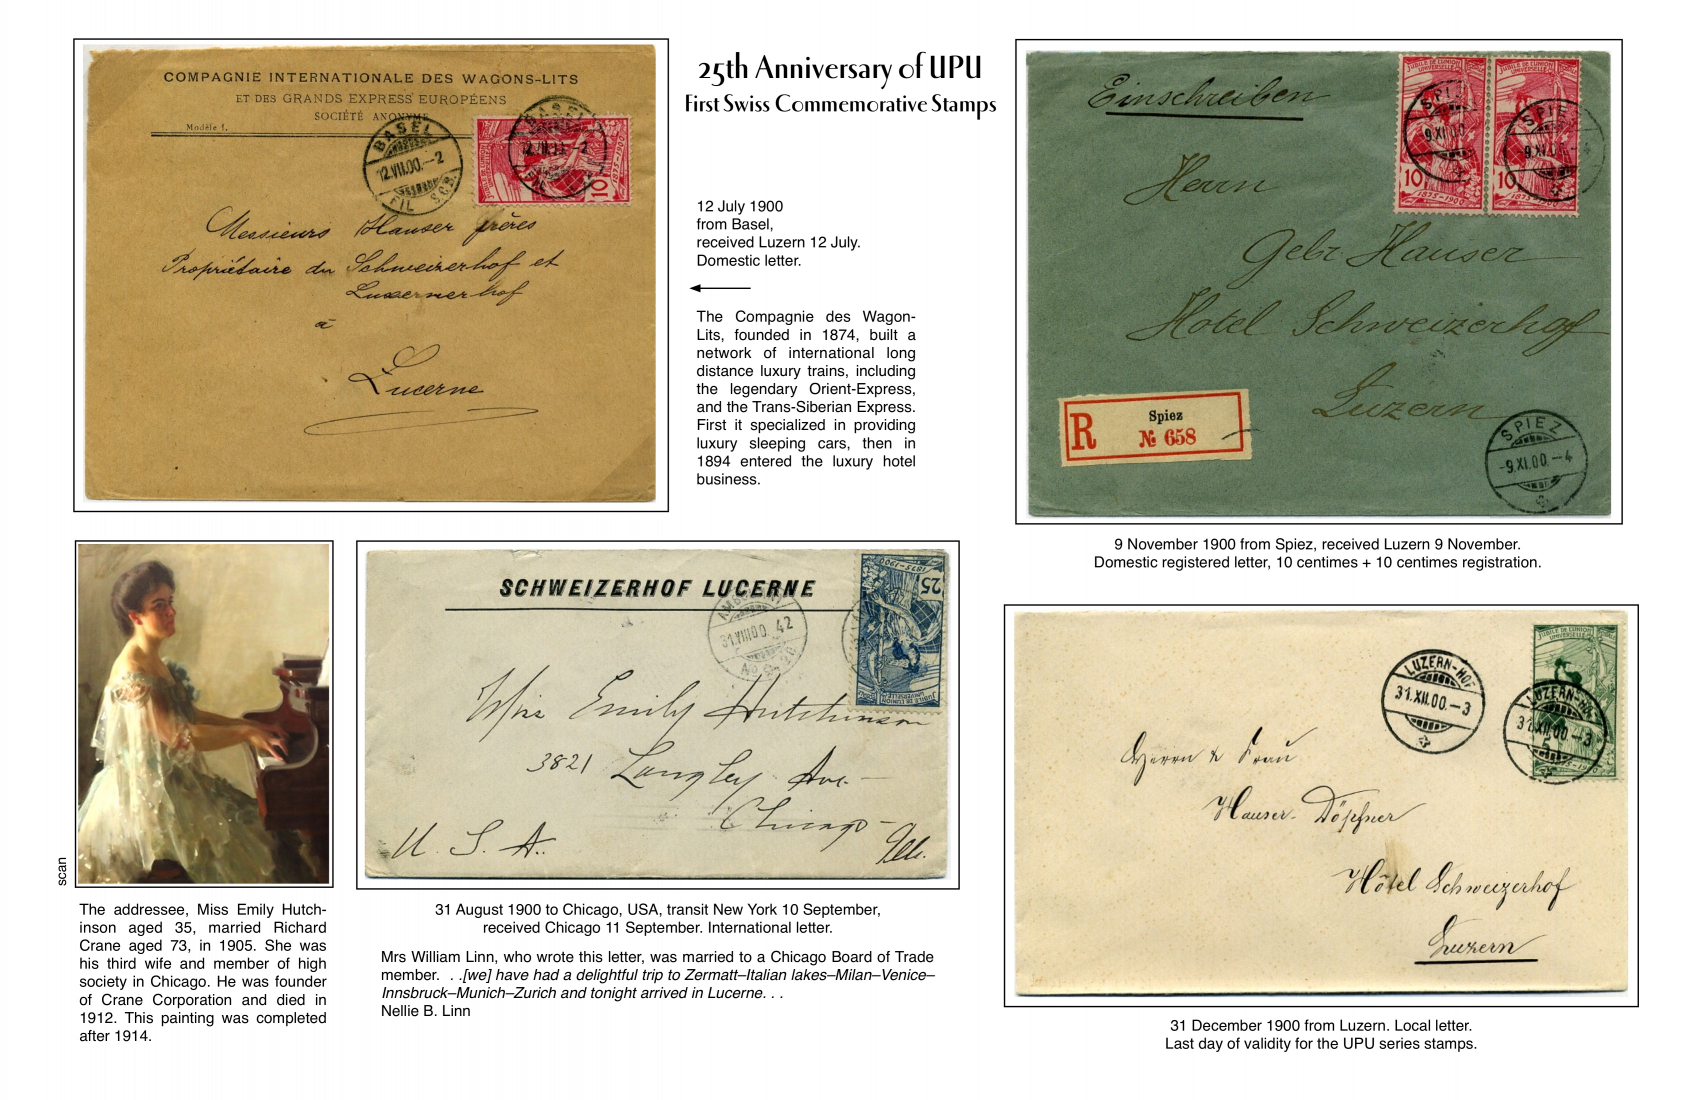 COMPAGNIE INTERNATIONALE DES WAGONS-LITS
ET DES GRANDS EXPRESS EUROPÉENS
SOCIÉTÉ ANONYME
Modèle 1.
BASEL
12.VII.00.–2
FIL S.C.B.
BASEL
1875–1900
10
Messieurs Hauser frères
Propriétaire du Schweizerhof et
Luzernerhof
à
Lucerne
25th Anniversary of UPU
First Swiss Commemorative Stamps
12 July 1900
from Basel,
received Luzern 12 July.
Domestic letter.
The Compagnie des Wagon-
Lits, founded in 1874, built a
network of international long
distance luxury trains, including
the legendary Orient-Express,
and the Trans-Siberian Express.
First it specialized in providing
luxury sleeping cars, then in
1894 entered the luxury hotel
business.
Einschreiben
JUBILÉ DE L'UNION
UNIVERSELLE
JUBILÉ DE L'UNION
UNIVERSELLE
SPIEZ
9.XI.00
SPIEZ
9.XI.0
10
1875–1900
10
1875–1900
Herrn
Gebr Hauser
Hotel Schweizerhof
Luzern
R
Spiez
№ 658
SPIEZ
-9.XI.00.–4
9 November 1900 from Spiez, received Luzern 9 November.
Domestic registered letter, 10 centimes + 10 centimes registration.
scan
The addressee, Miss Emily Hutch-
inson aged 35, married Richard
Crane aged 73, in 1905. She was
his third wife and member of high
society in Chicago. He was founder
of Crane Corporation and died in
1912. This painting was completed
after 1914.
SCHWEIZERHOF LUCERNE
31.VIII.00. 42
1875–1900
25
JUBILÉ DE L'UNION
UNIVERSELLE
Miss Emily Hutchinson
3821 Langley Ave–
Chicago–
U. S. A. Ills.
31 August 1900 to Chicago, USA, transit New York 10 September,
received Chicago 11 September. International letter.
Mrs William Linn, who wrote this letter, was married to a Chicago Board of Trade
member. . .[we] have had a delightful trip to Zermatt–Italian lakes–Milan–Venice–
Innsbruck–Munich–Zurich and tonight arrived in Lucerne. . .
Nellie B. Linn
JUBILÉ DE L'UNION POSTALE
UNIVERSELLE
LUZERN-HOF
31.XII.00.–3
LUZERN-HOF
31.XII.00–3
Herrn & Frau
Hauser-Döpfner
Hôtel Schweizerhof
Luzern
31 December 1900 from Luzern. Local letter.
Last day of validity for the UPU series stamps.